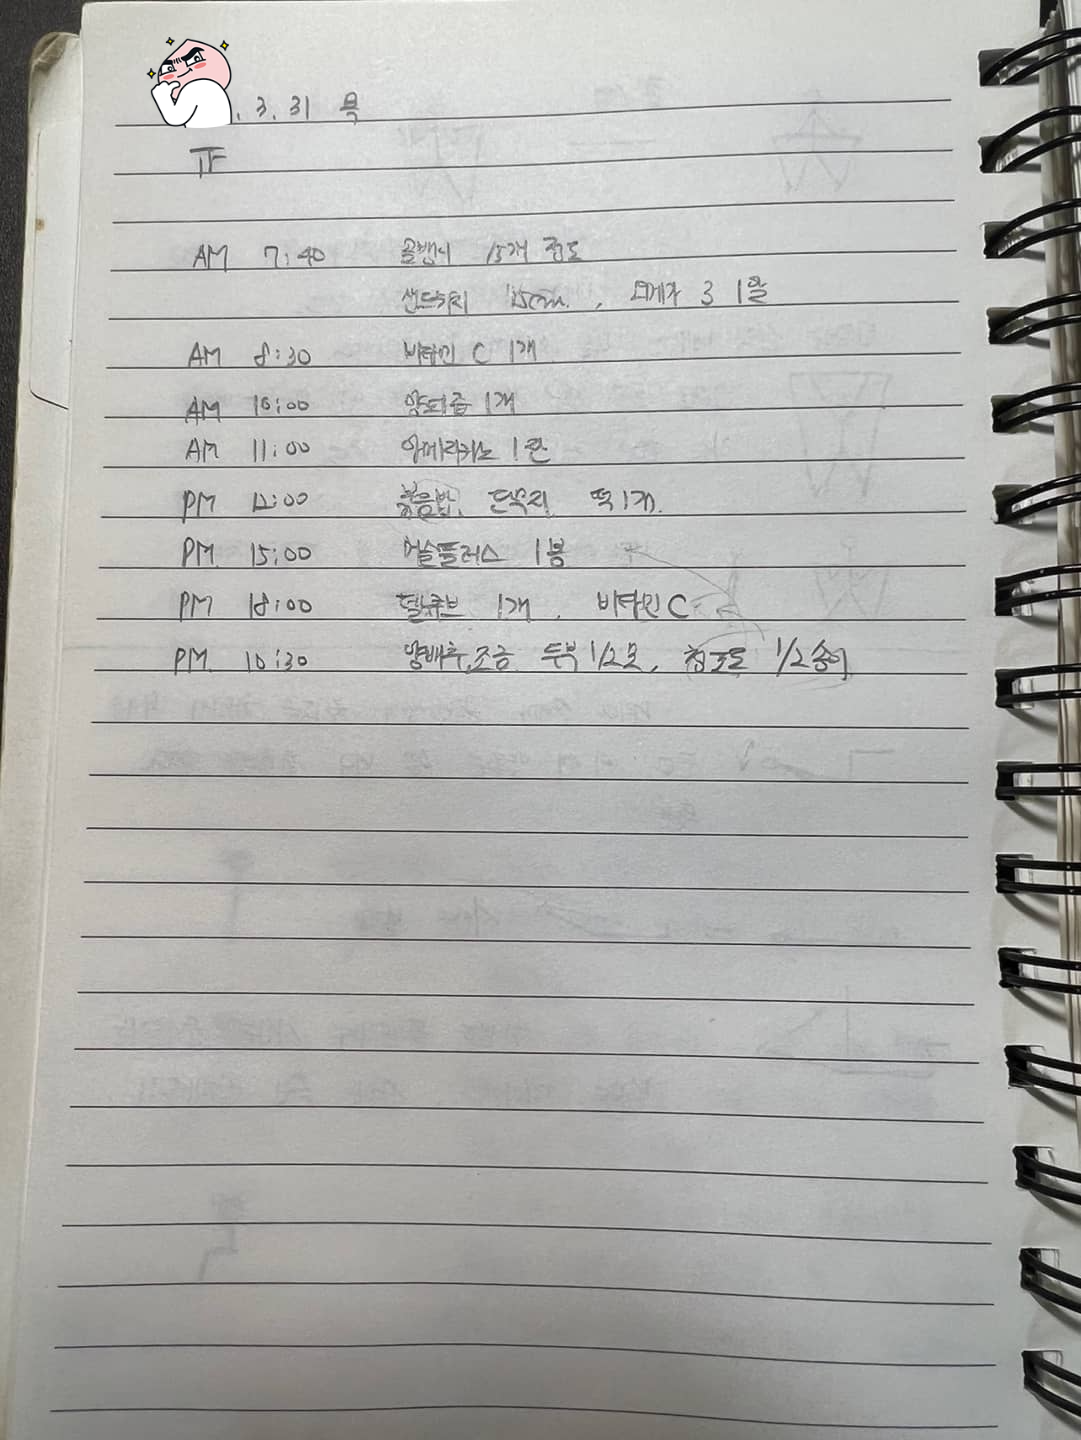 . 3. 31 목
AM 7:40 골뱅이 15개 정도
샌드위치 15cm. , 오메가 3 1알
AM 8:30 비타민 C 1개
AM 10:00 양파즙 1개
AM 11:00 아메리카노 1잔
PM 12:00 볶음밥, 단무지 떡 1개.
PM 15:00 머슬플러스 1봉
PM 18:00 1개 , 비타민 C
PM 10:30 양배추, 조금 두부 1/2모, 청포도 1/2송이